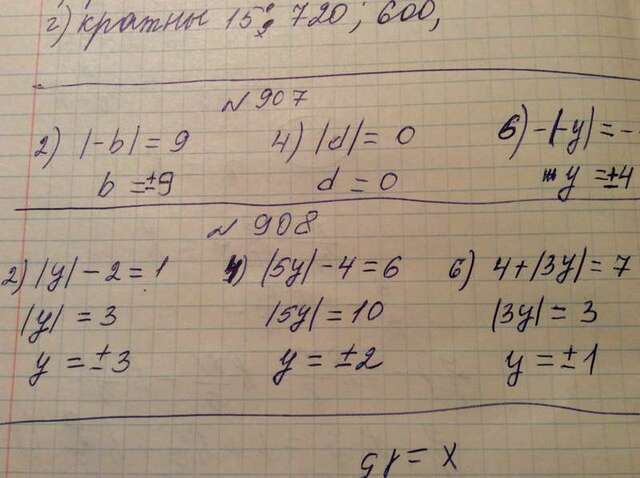 г) кратны 15: 720; 600,
№ 907
2) |-b| = 9 4) |d| = 0 6) -|-y| = -
b = ±9 d = 0 y = ±4
№ 908
2) |y| - 2 = 1 4) |5y| - 4 = 6 6) 4 + |3y| = 7
|y| = 3 |5y| = 10 |3y| = 3
y = ±3 y = ±2 y = ±1
= x